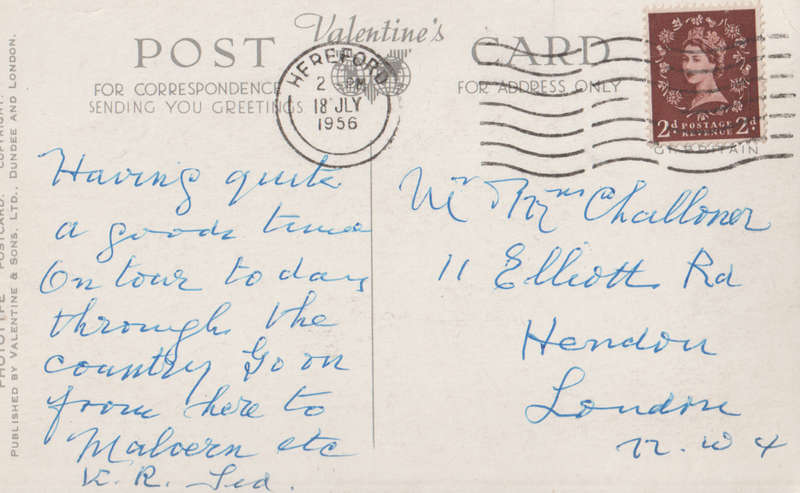 Valentine's
POST CARD
FOR CORRESPONDENCE
SENDING YOU GREETINGS
FOR ADDRESS ONLY
HEREFORD
2 PM
18 JLY
1956
2d POSTAGE REVENUE 2d
GT. BRITAIN
PHOTOTYPE POSTCARD. COPYRIGHT
PUBLISHED BY VALENTINE & SONS, LTD., DUNDEE AND LONDON.
Having quite
a good time
On tour to day
through the
country Go on
from here to
Malvern etc
K. R. Ted.
Mr & Mrs Challoner
11 Elliott Rd
Hendon
London
N.W 4